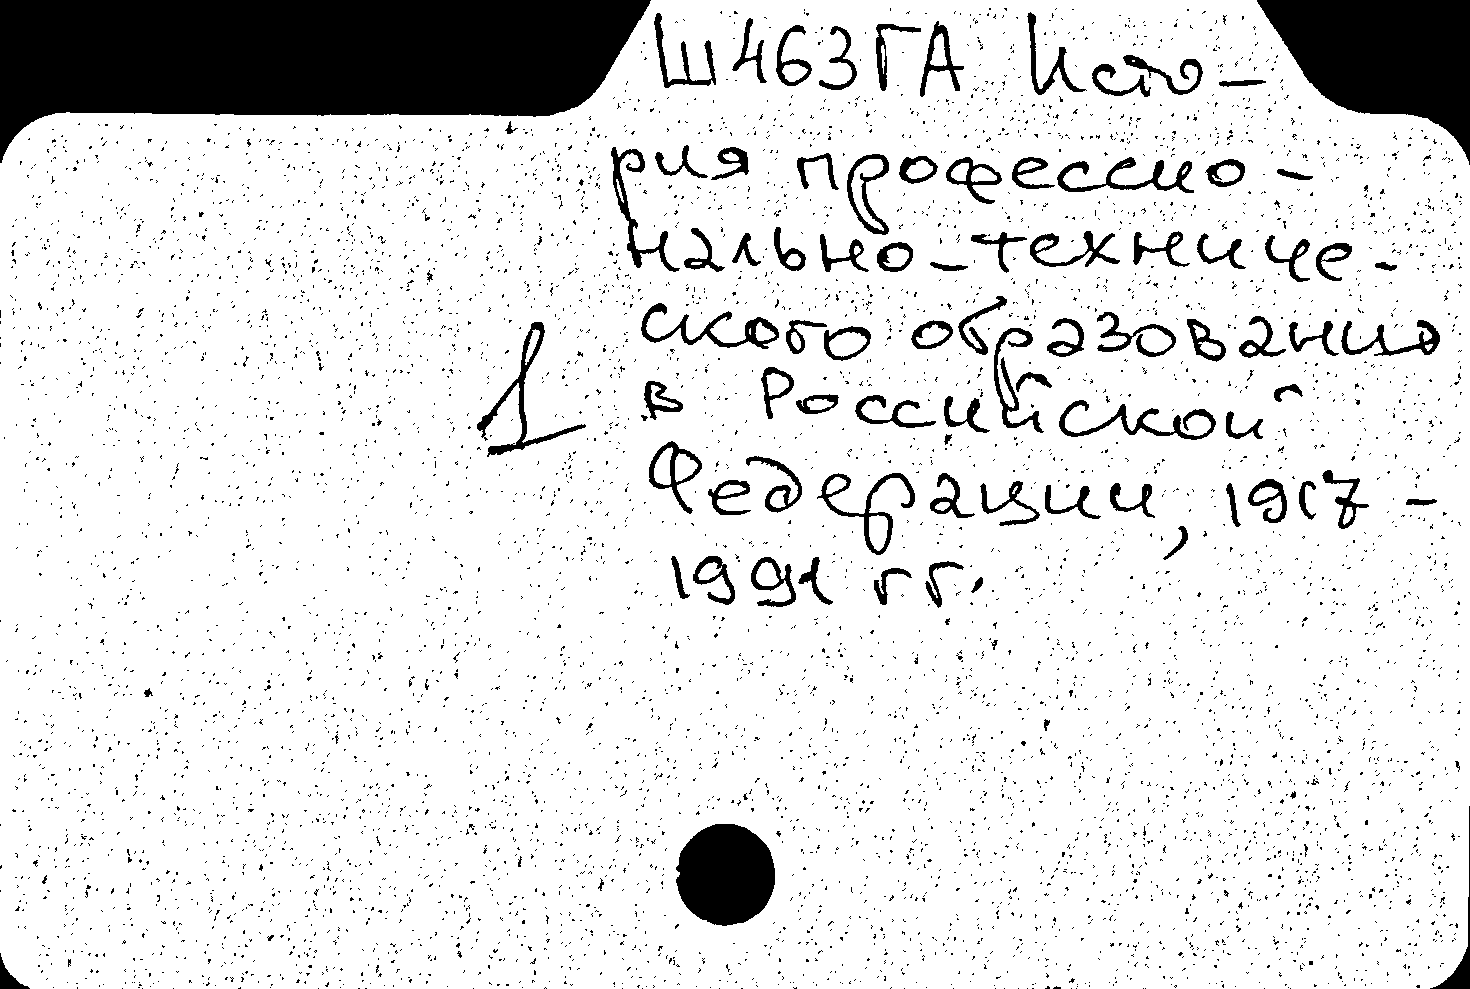 Ш463ГА Исто-
рия профессио-
нально-техниче-
ского образования
1
в Российской
Федерации, 1917-
1991 гг.